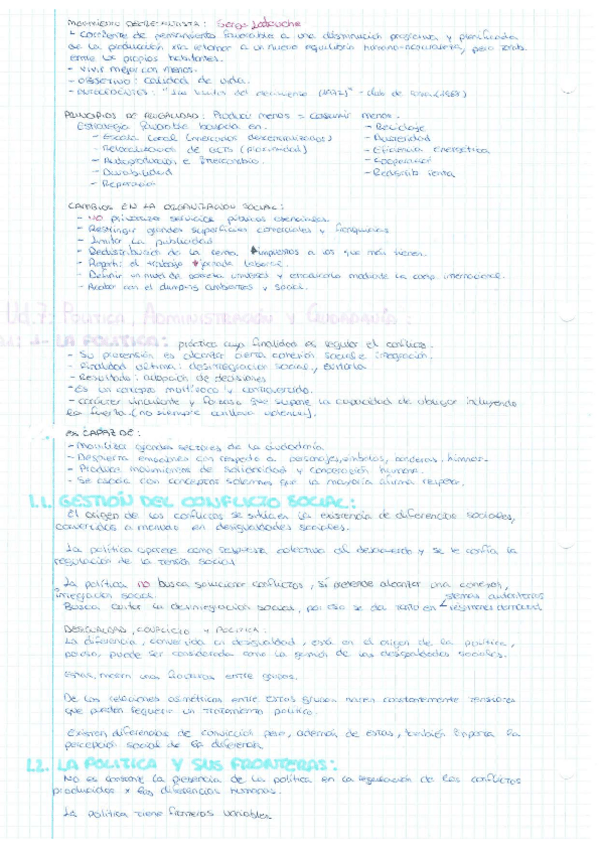 MOVIMIENTO DECRECENTISTA: Serge Latouche
- corriente de pensamiento favorable a una disminución progresiva y planificada
de la producción para retornar a un nuevo equilibrio humano-naturaleza, pero
entre los propios habitantes.
- vivir mejor con menos.
- OBJETIVO: calidad de vida.
- ANTECEDENTES: "Los límites del crecimiento (1972)" - club de Roma (1968)
PRINCIPIOS DE FRUGALIDAD: Producir menos = consumir menos.
Estrategia favorable basada en: - Reciclaje
- Escala local (mercados descentralizados) - Austeridad
- Relocalización de acts (proximidad) - Eficiencia energética
- Autoproducción e Intercambio. - Cooperación
- Durabilidad - Redistrib renta.
- Reparación
CAMBIOS EN LA ORGANIZACIÓN SOCIAL:
- NO privatizar servicios públicos esenciales.
- Restringir grandes superficies comerciales y franquicias
- Limitar la publicidad.
- Redistribución de la renta. ↑impuestos a los que más tienen.
- Repartir el trabajo ↓jornada laboral.
- Definir un nivel de pobreza universal y erradicarlo mediante la coop. internacional.
- Acabar con el dumping ambiental y social.
Ud.7: POLÍTICA, ADMINISTRACIÓN Y CIUDADANÍA:
1- LA POLÍTICA: práctica cuya finalidad es regular el conflicto.
- Su pretensión es alcanzar cierta cohesión social e integración.
- Finalidad última: desintegración social, evitarla
- Resultado: adopción de decisiones
- Es un concepto multívoco y controvertido.
- carácter vinculante y forzoso que supone la capacidad de obligar incluyendo
la fuerza. (no siempre conlleva violencia).
ES CAPAZ DE:
- Movilizar grandes sectores de la ciudadanía.
- Despierta emociones con respecto a personajes, símbolos, banderas, himnos.
- Produce movimientos de solidaridad y cooperación humana.
- Se asocia con conceptos solemnes que la mayoría afirma respetar.
1.1. GESTIÓN DEL CONFLICTO SOCIAL:
El origen de los conflictos se sitúa en la existencia de diferencias sociales,
convertidas a menudo en desigualdades sociales.
La política aparece como respuesta colectiva al desacuerdo y se le confía la
regulación de la tensión social
La política no busca solucionar conflictos, sí pretende alcanzar una cohesión,
integración social. sistemas autoritarios
Busca evitar la desintegración social, por eso se da tanto en < regímenes democrát.
DESIGUALDAD, CONFLICTO Y POLÍTICA:
La diferencia, convertida en desigualdad, está en el origen de la política,
por eso, puede ser considerada como la gestión de las desigualdades sociales.
Estas, crean una fractura entre grupos.
De las relaciones asimétricas entre estos grupos nacen constantemente tensiones
que pueden requerir un tratamiento político.
Existen diferencias de convicción pero, además de estas, también importa la
percepción social de la diferencia.
1.2. LA POLÍTICA Y SUS FRONTERAS:
No es constante la presencia de la política en la regulación de los conflictos
producidos x las diferencias humanas.
La política tiene fronteras variables